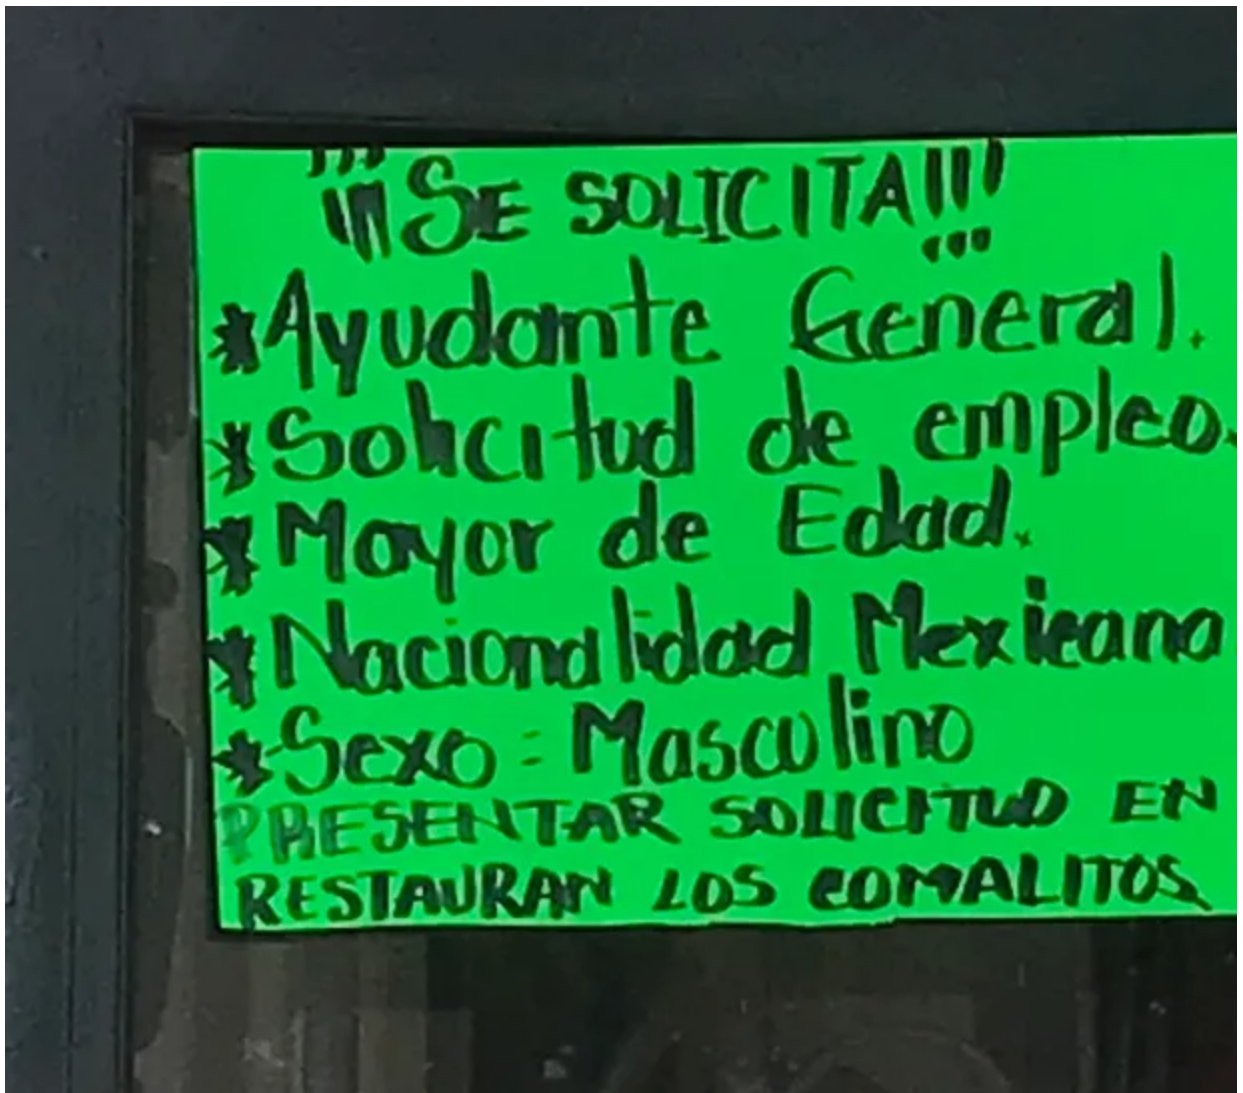 ¡¡¡SE SOLICITA!!!
*Ayudante General.
*Solicitud de empleo.
*Mayor de Edad.
*Nacionalidad Mexicana
*Sexo: Masculino
PRESENTAR SOLICITUD EN
RESTAURAN LOS COMALITOS